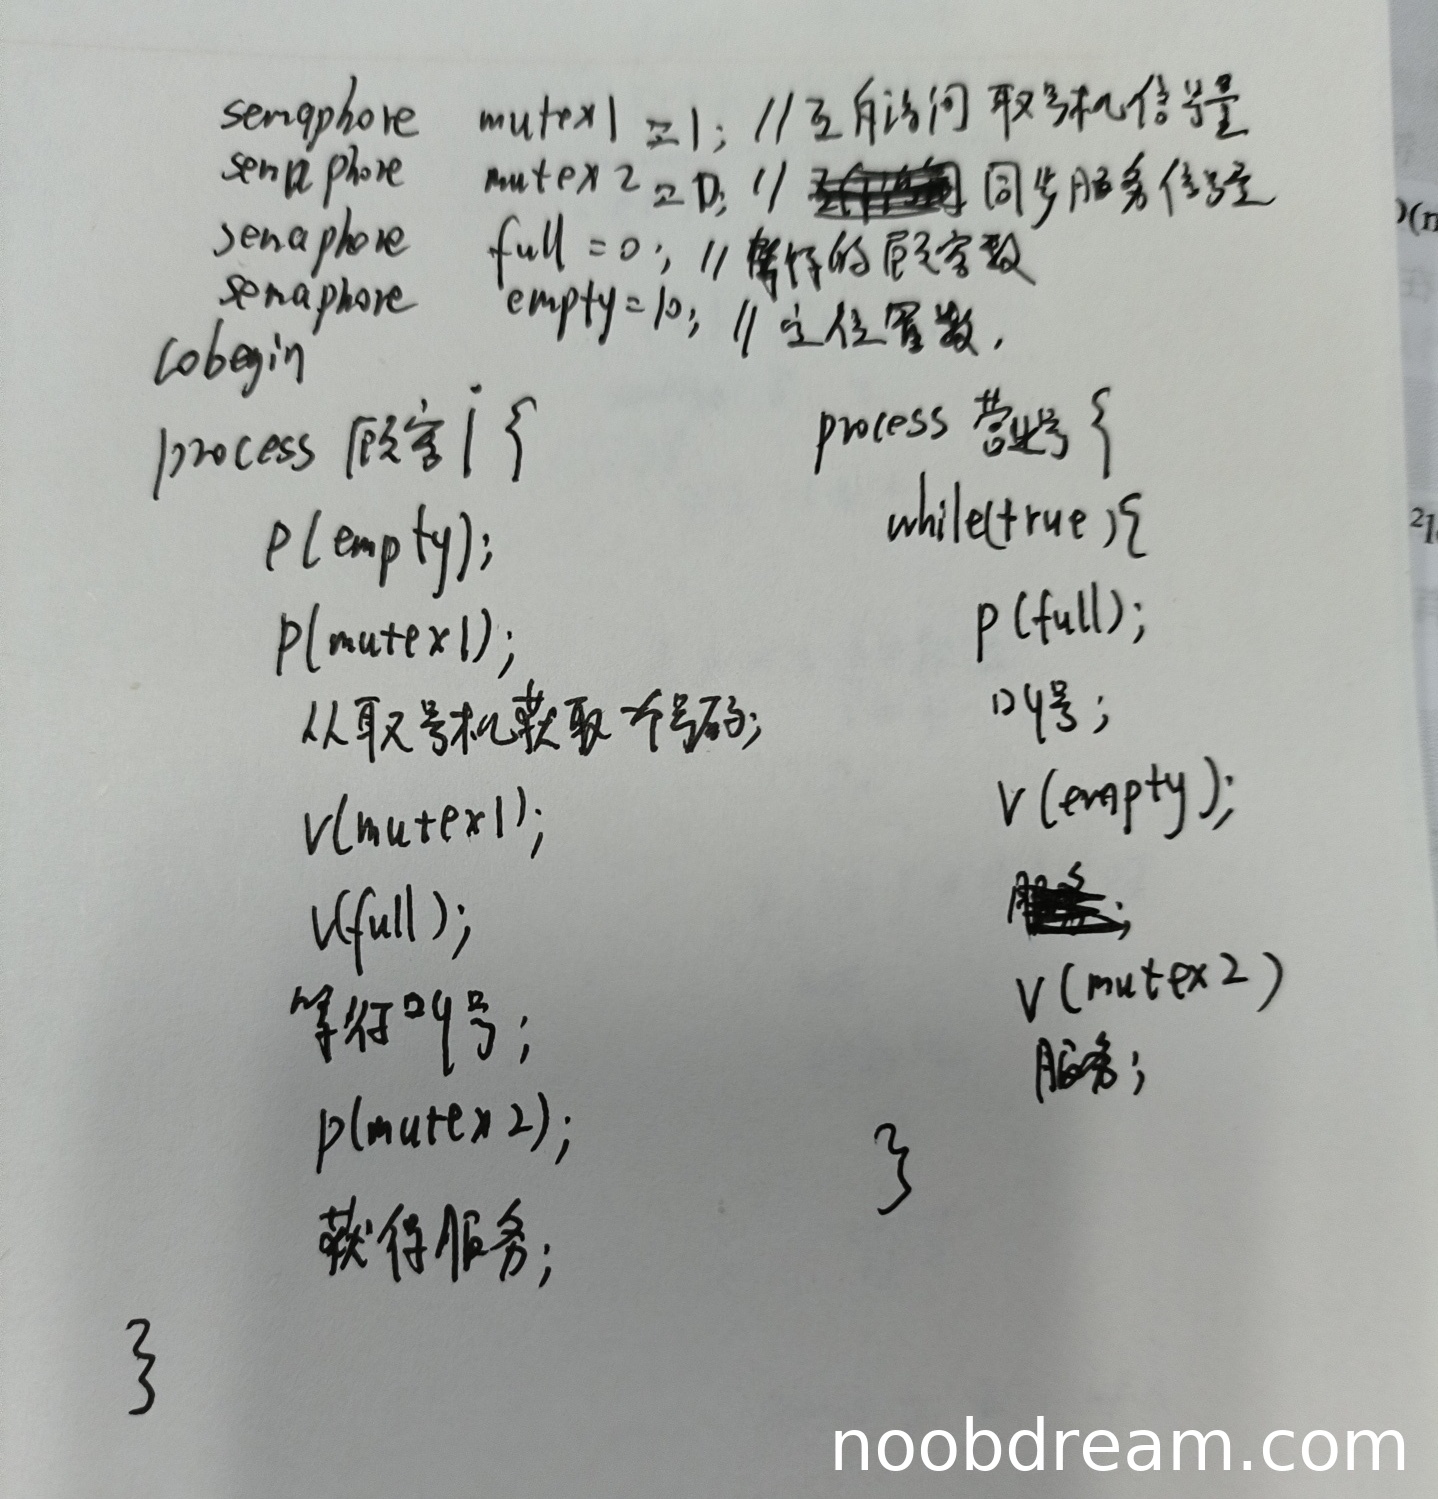 semaphore mutex1 =1; //互斥访问取号机信号量
semaphore mutex2 =0; // 同步服务信号量
semaphore full =0; //等待的顾客数
semaphore empty=10; //空位置数.
cobegin
process 顾客i {
P(empty);
P(mutex1);
从取号机获取一个号码;
V(mutex1);
V(full);
等待叫号;
P(mutex2);
获得服务;
}
process 营业员 {
while(true){
P(full);
叫号;
V(empty);
V(mutex2)
服务;
}
noobdream.com